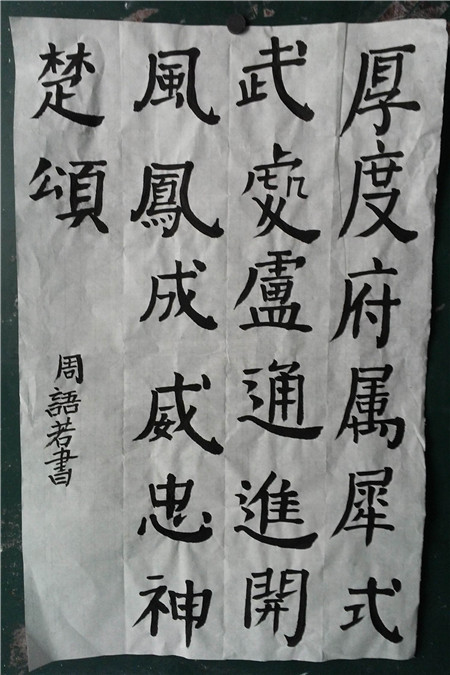 厚度府属犀式
武處盧通進開
風鳳成威忠神
楚頌
周語若書